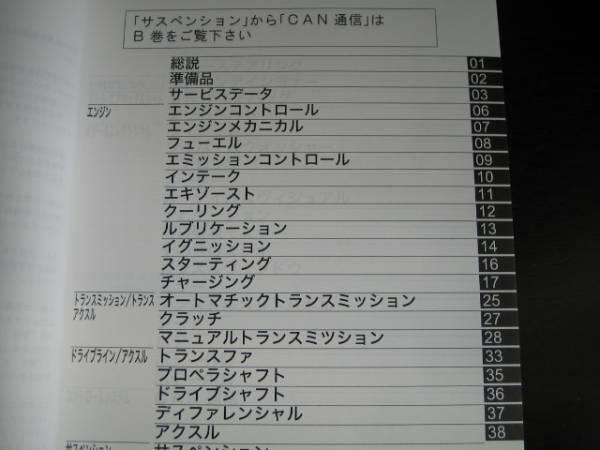 「サスペンション」から「CAN 通信」は
B 巻をご覧下さい
総説 01
準備品 02
サービスデータ 03
エンジン エンジンコントロール 06
エンジンメカニカル 07
フューエル 08
エミッションコントロール 09
インテーク 10
エキゾースト 11
クーリング 12
ルブリケーション 13
イグニッション 14
スターティング 16
チャージング 17
トランスミッション/トランス オートマチックトランスミッション 25
アクスル クラッチ 27
マニュアルトランスミツション 28
ドライブライン/アクスル トランスファ 33
プロペラシャフト 35
ドライブシャフト 36
ディファレンシャル 37
アクスル 38
サスペンション サスペンション